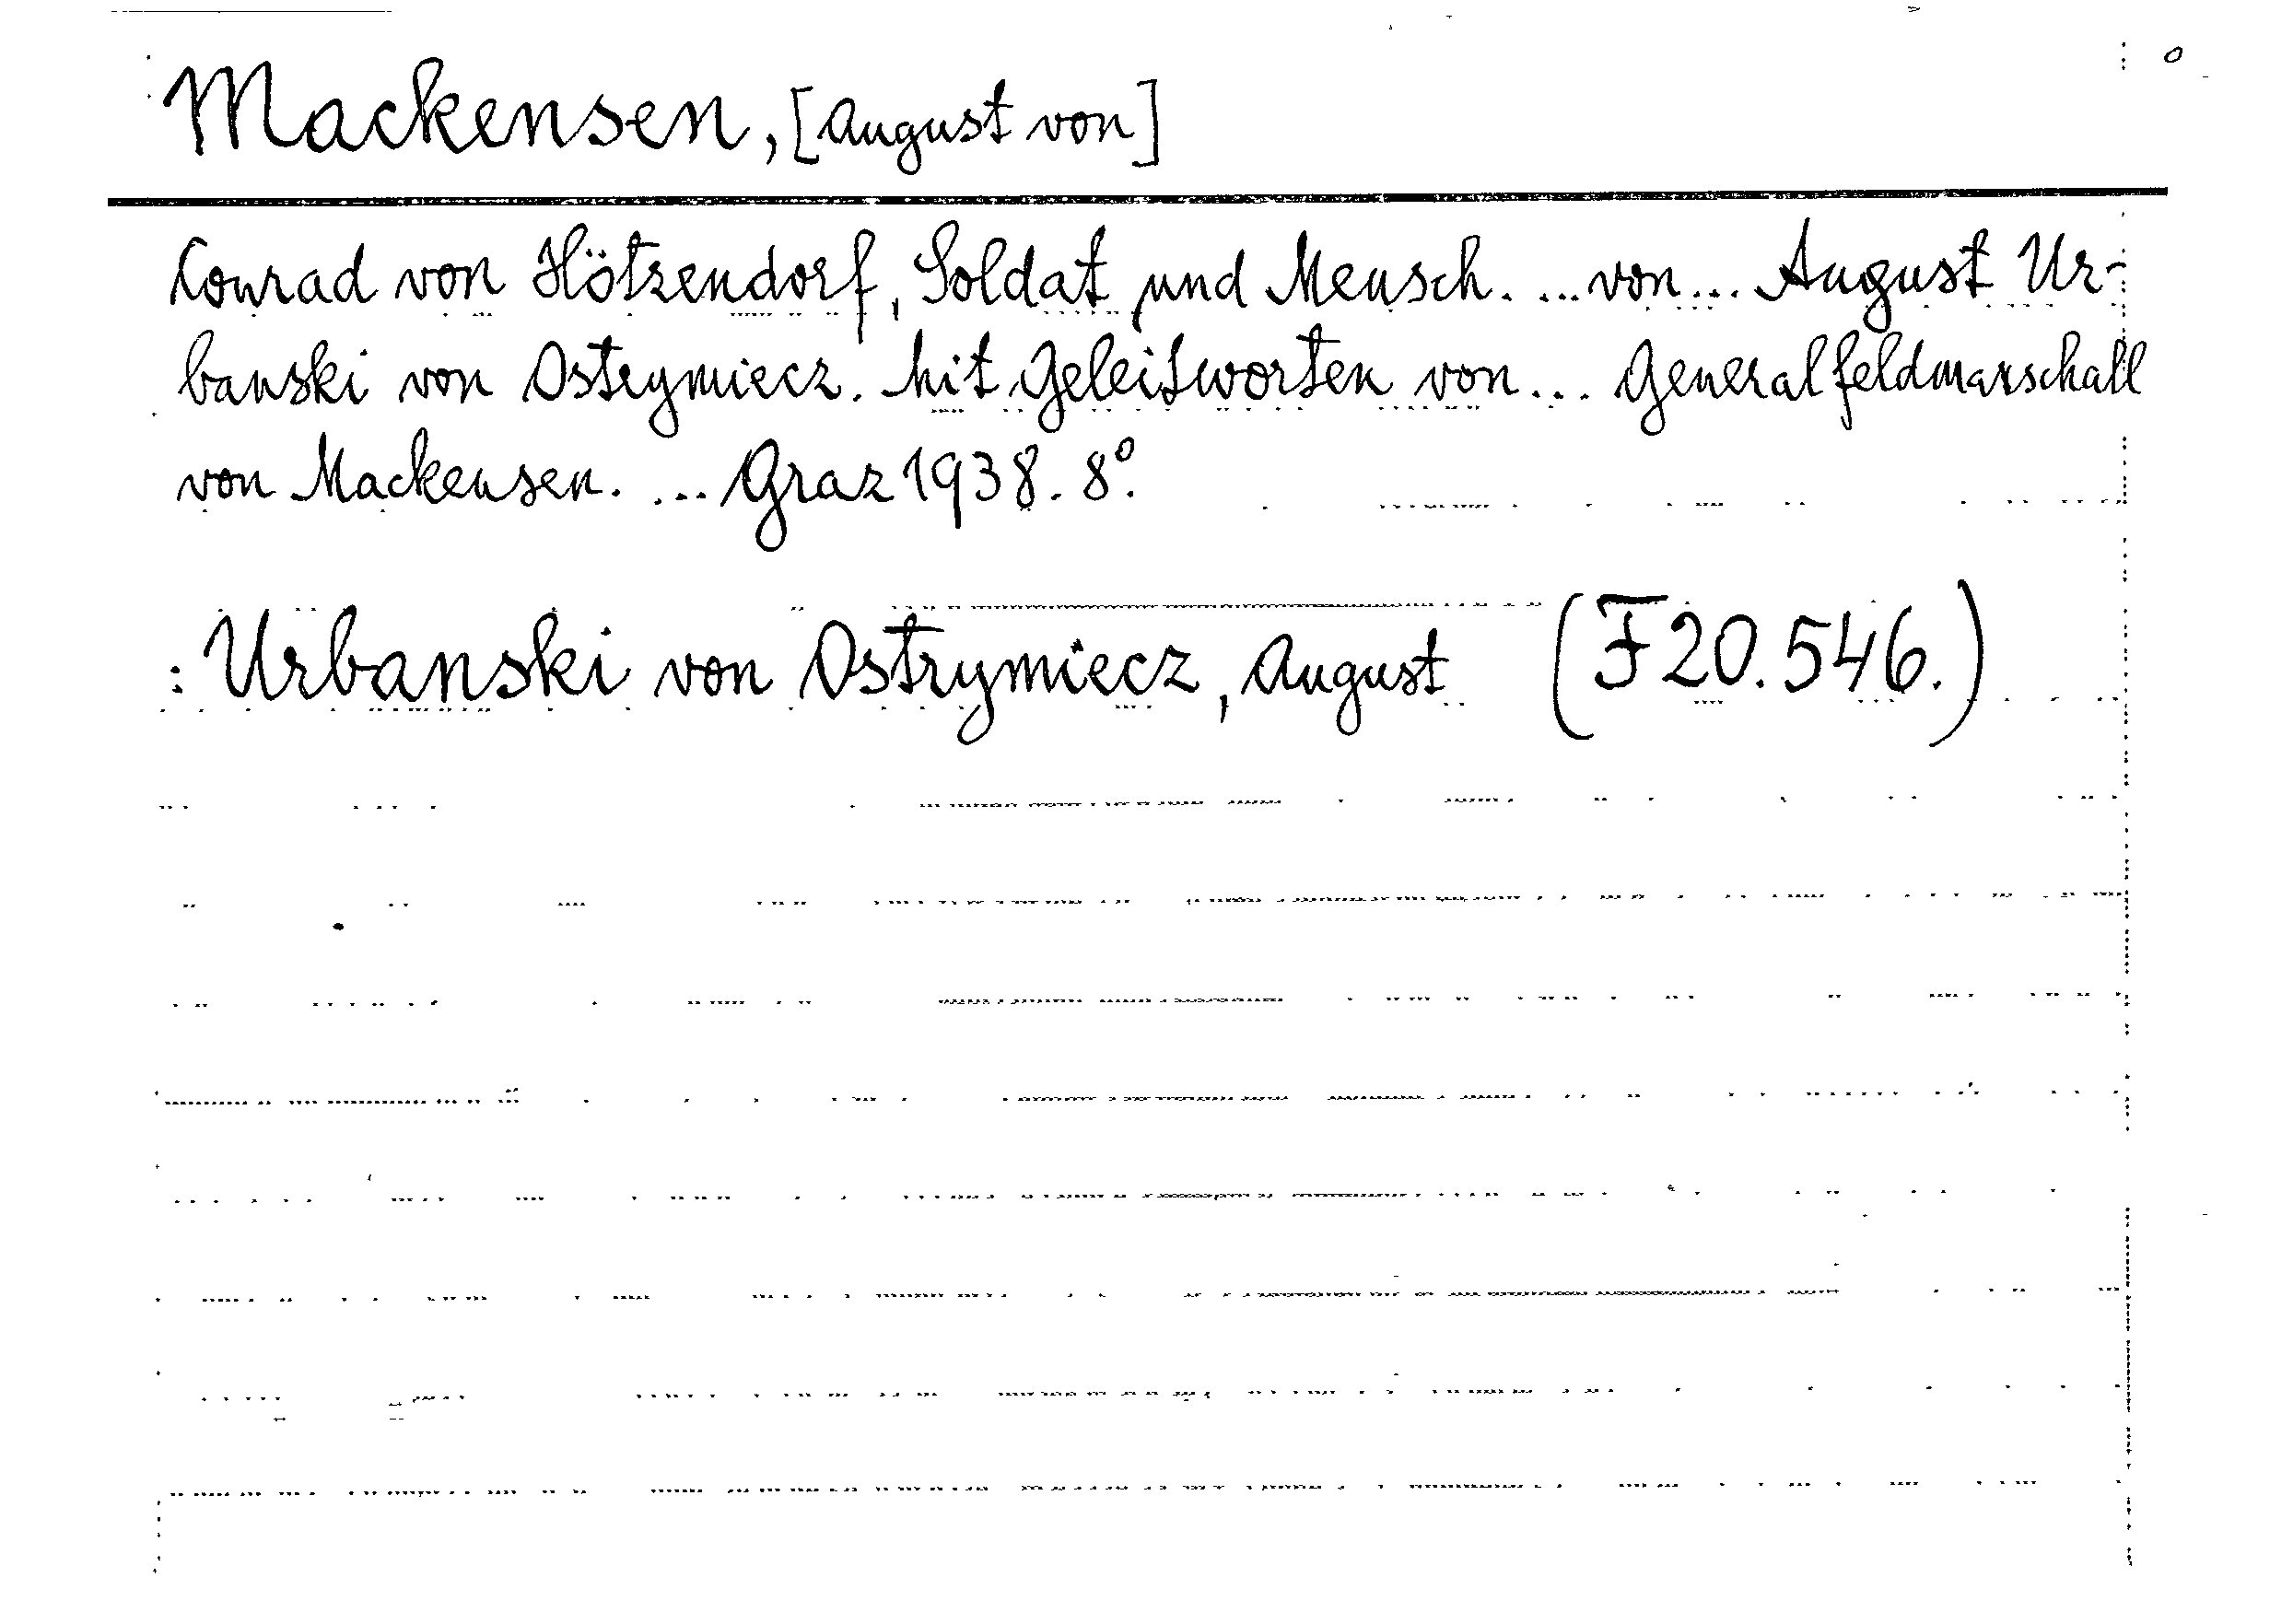 Mackensen, [August von]
Conrad von Hötzendorf, Soldat und Mensch. ... von ... August Ur-
banski von Ostrymiecz. Mit Geleitworten von ... Generalfeldmarschall
von Mackensen. ... Graz 1938. 8°.
: Urbanski von Ostrymiecz, August (F 20.546.)